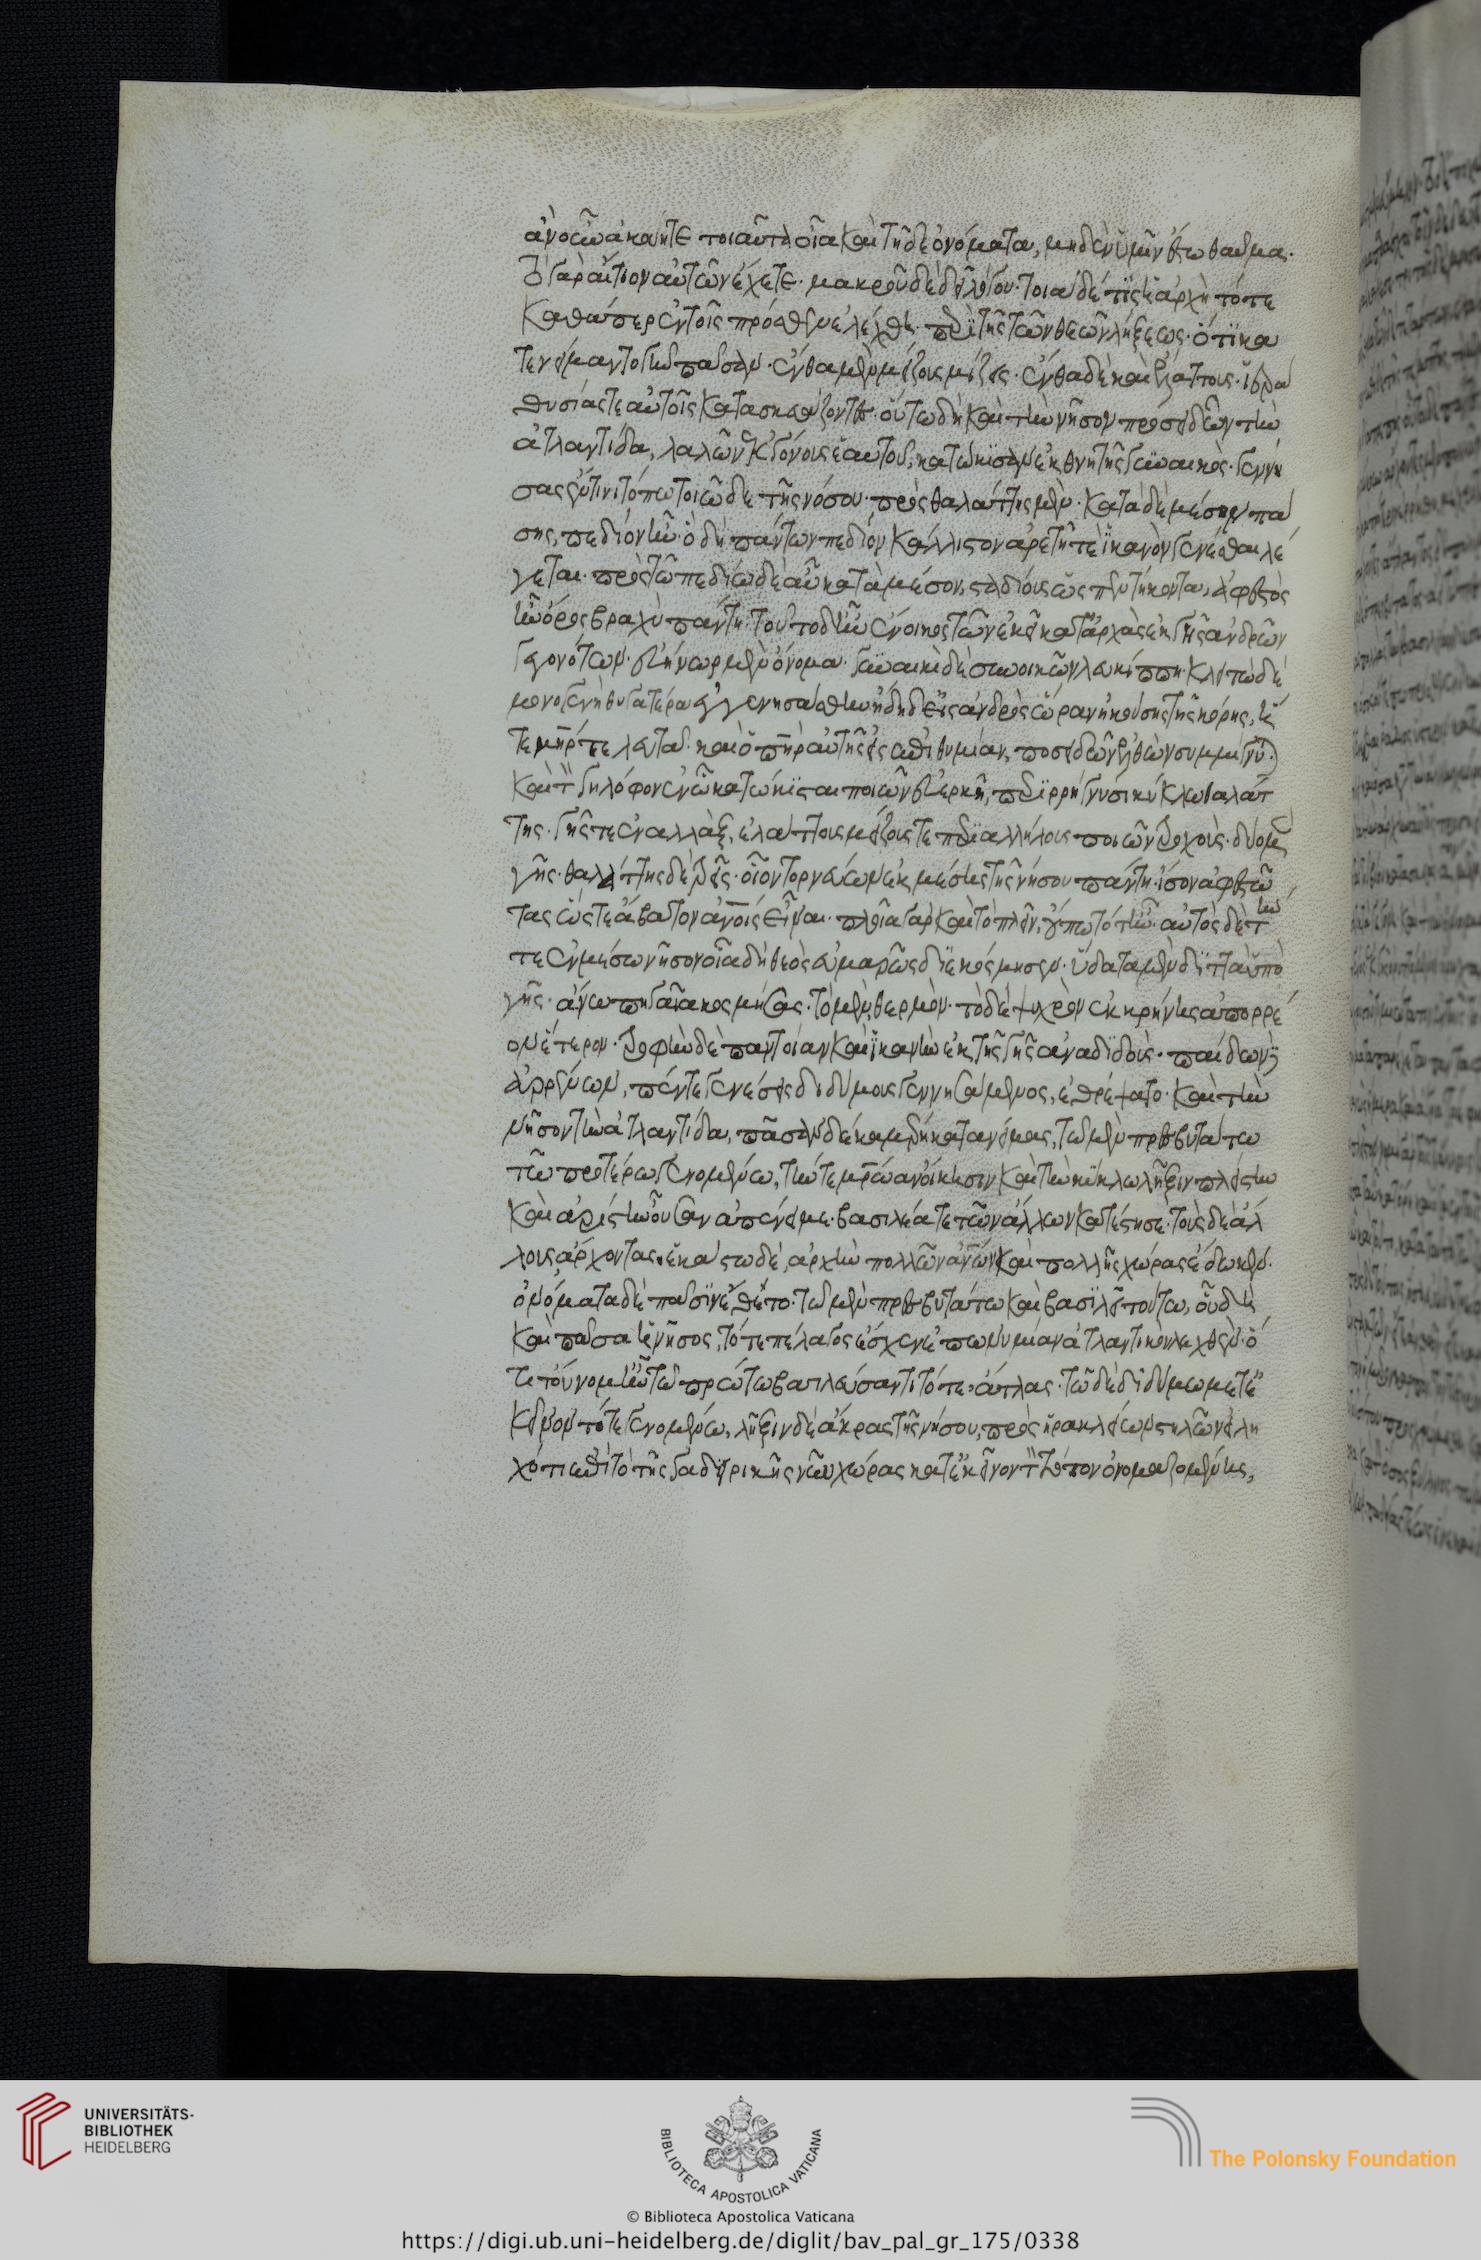 ἂν οὖν ἀκούητε τοιαῦτα οἷα καὶ τῇδε ὀνόματα, μηδὲν ὑμῖν ἔστω θαῦμα·
τὸ γὰρ αἴτιον αὐτῶν ἔχετε· μακροῦ δὲ δὴ λόγου· τοιάδέ τις ἦ ἀρχὴ τότε
καθάπερ ἐν τοῖς πρόσθεν ἐλέχθη· περὶ τῆς τῶν θεῶν λήξεως· ὅτι κα
τενείμαντο γῆν πᾶσαν· ἔνθα μὲν μείζους λήξεις· ἔνθα δὲ καὶ ἐλάττους· ἱερὰ
θυσίας τε αὐτοῖς κατασκευάζοντες· οὕτω δὴ καὶ τὴν νῆσον ποσειδῶν τὴν
ἀτλαντίδα, λαχὼν ἐκγόνους ἑαυτοῦ, κατῴκισεν ἐκ θνητῆς γυναικὸς· γεννή
σας ἔν τινι τόπω τοιῶδε τῆς νήσου· πρὸς θαλάττης μὲν· κατὰ δὲ μέσην πά
σης, πεδίον ἦν· ὃ δὴ πάντων πεδίον κάλλιστον ἀρετῇ τε ἱκανὸν γενέσθαι λέ
γεται· πρὸς τῶ πεδίω δὲ αὖ κατὰ μέσον, σταδίους ὡς πεντήκοντα, ἀφεστὸς
ἦν ὄρος βραχὺ πάντη· τούτο δ' ἦν ἔνοικος τῶν ἐκεῖ κατ' ἀρχὰς ἐκ γῆς ἀνδρῶν
γεγονότων· εὐήνωρ μὲν ὄνομα· γυναικὶ δὲ συνοικῶν λευκίππη· κλειτὼ δὲ
μονογενῆ θυγατέρα ἐγενησάσθην ἤδη δ' εἰς ἀνδρὸς ὥραν ἡκούσης τῆς κόρης, ἥ
τε μηρ τελευτᾶ· καὶ ὁ πηρ αὐτῆς εἰς ἐπιθυμίαν, ποσειδῶν ἐλθὼν συμμίγνυται
καὶ τὸν γηλόφον ἐν ὧ κατώκιστο ποιῶν εὐερκῆ, περιρρήγνυσι κύκλω θαλάτ
της· γῆς τε ἐναλλὰξ, ἐλάττους μείζους τε περὶ ἀλλήλους ποιῶν τροχοὺς· δύο μὲν
γῆς· θαλάττης δὲ τρεῖς· οἷον τορνεύων ἐκ μέσης τῆς νήσου πάντη ἴσον ἀφεστῶ
τας ὥστε ἄβατον ἀνοις εἶναι· πλοῖα γὰρ καὶ τὸ πλεῖν, οὔπω τότ' ἦν· αὐτὸς δὲ τήν
τε ἐν μέσω νῆσον οἷα δὴ θεὸς εὐμαρῶς διεκόσμησεν· ὕδατα μὲν διττὰ ὑπὸ
γῆς· ἄνω πηγαῖα κομίσας· τὸ μὲν θερμὸν· τὸ δὲ ψυχρὸν ἐκ κρήνης ἀπορρέ
ον ἕτερον· τροφὴν δὲ παντοίαν καὶ ἱκανὴν ἐκ τῆς γῆς ἀναδιδοὺς· παίδων δὲ
ἀρρένων, πέντε γενέσεις διδύμους γεννησάμενος, ἐθρέψατο· καὶ τὴν
νῆσον τὴν ἀτλαντίδα, πᾶσαν δέκα μέρη κατανείμας, τῶ μὲν πρεσβυτάτω
τῶν προτέρω γενομένω, τήν τε μρώαν οἴκησιν καὶ τὴν κύκλω λῆξιν πλείστην
καὶ ἀρίστην οὖσαν ἀπένειμε· βασιλέα τε τῶν ἄλλων κατέστησε· τοὺς δὲ ἄλ
λους ἄρχοντας· ἑκάστω δὲ, ἀρχὴν πολλῶν ἀνων καὶ πολλῆς χώρας ἔδωκεν·
ὀνόματα δὲ πᾶσιν ἔθετο· τῶ μὲν πρεσβυτάτω καὶ βασιλεῖ τοῦτο, οὗ δὴ
καὶ πᾶσα ἡ νῆσος, τό τε πέλαγος ἔσχεν ἐπωνυμίαν ἀτλαντικὸν λεχθὲν· ὅ
τε τοὔνομ' ἦν τῶ πρώτω βασιλεύσαντι τότε ἄτλας· τῶ δὲ διδύμω μετ' ἐ
κεῖνόν τότε γενομένω, λῆξιν δὲ ἄκρας τῆς νήσου, πρὸς ἡρακλείων στηλῶν εἰλη
χότι ἐπὶ τὸ τῆς γαδειρικῆς νῦν χώρας κατ' ἐκεῖνον τὸν τόπον ὀνομαζομένης,
UNIVERSITÄTS-
BIBLIOTHEK
HEIDELBERG
BIBLIOTECA APOSTOLICA VATICANA
The Polonsky Foundation
© Biblioteca Apostolica Vaticana
https://digi.ub.uni-heidelberg.de/diglit/bav_pal_gr_175/0338